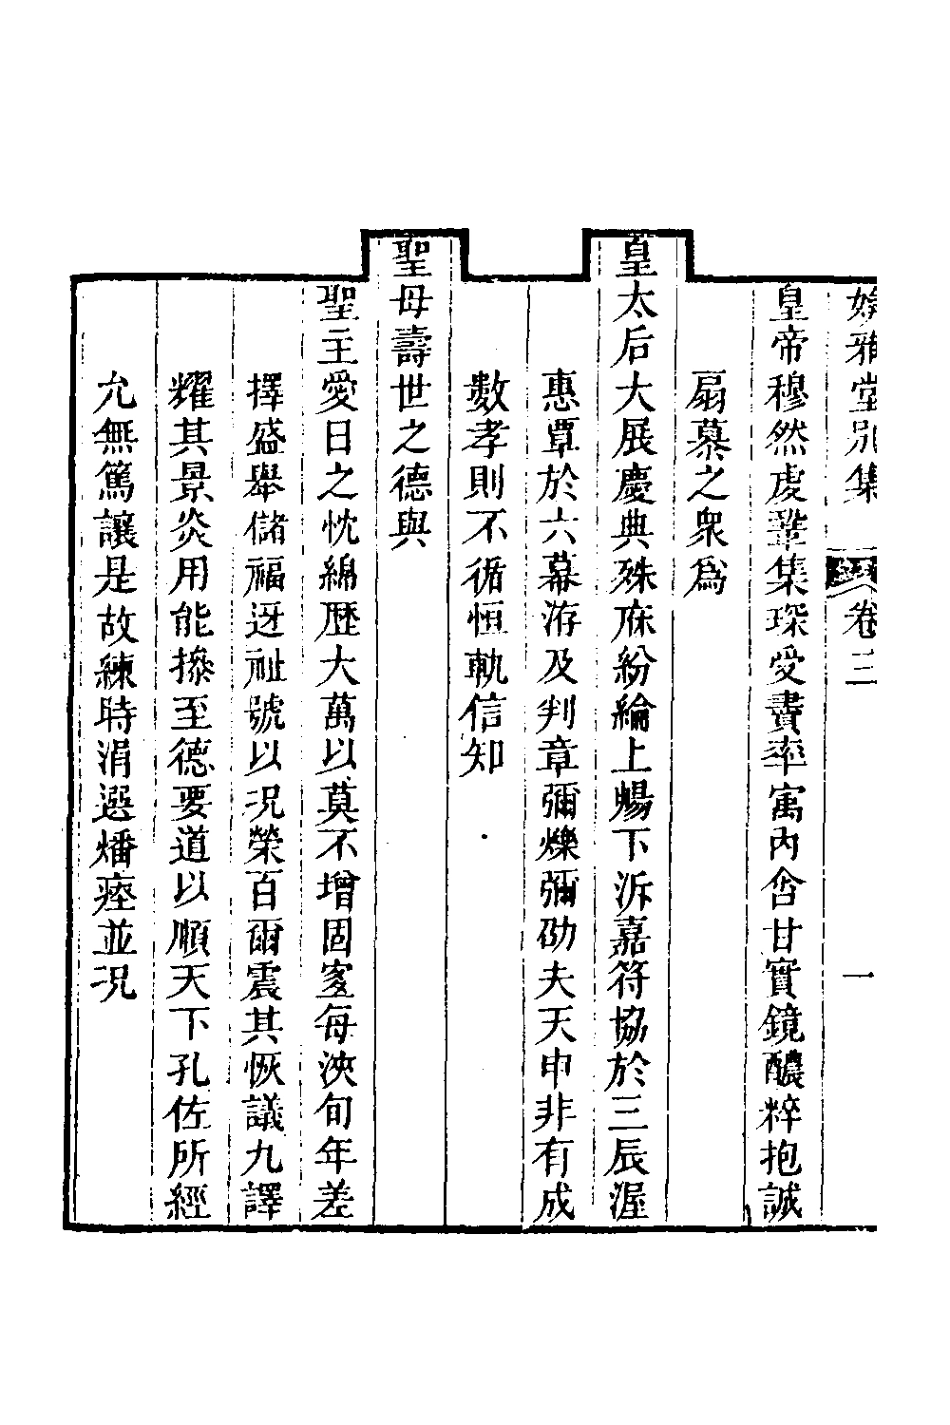 雅堂別集 卷三 一
皇帝穆然虔鞏集琛受賮率寓內含甘實鏡醲粹抱誠
扇慕之衆爲
皇太后大展慶典殊庥紛綸上暢下泝嘉符協於三辰渥
惠覃於六幕洊及判章彌爍彌劭夫天申非有成
數孝則不循恒軌信知
聖母壽世之德與
聖王愛日之忱綿歷大萬以莫不增固寔每浹旬年差
擇盛舉儲福迓祉號以況榮百爾震其恢議九譯
耀其景炎用能摻至德要道以順天下孔佐所經
允無篤讓是故練時涓選燔瘞並況